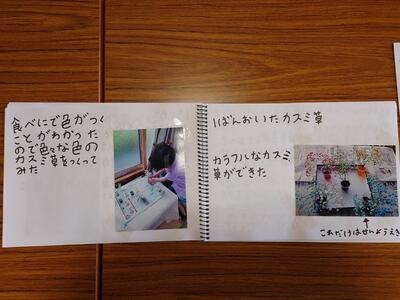 食べにで色がつく
ことがわかった
ので色々な色の
カスミ草をつくって
みた
1ばんおいたカスミ草
カラフルなカスミ
草ができた
↑
これだけはせんようえき